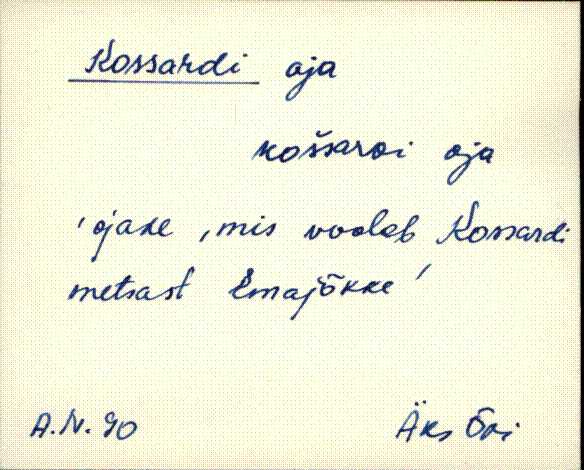 Kossardi oja
koššaroi oja
'ojake, mis voolab Kossardi
metsast Emajõkke'
A.N. 90
Äks Õvi